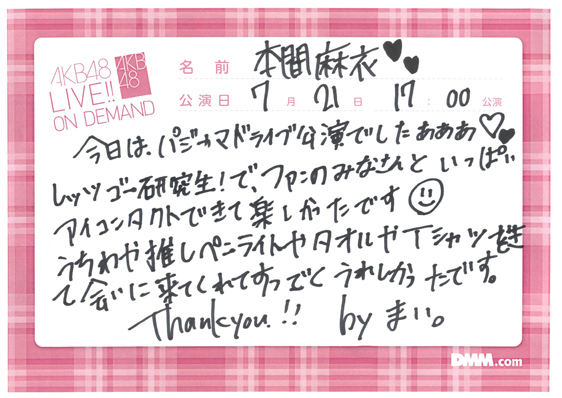 AKB48
LIVE!!
ON DEMAND
AKB
48
名前 本間麻衣♥♥
公演日 7月21日 17:00公演
今日は、パジャマドライブ公演でしたぁぁぁ♡♥
レッツゴー研究生!で、ファンのみなさんといっぱい
アイコンタクトできて楽しかったです☺
うちわや推しペンライトやタオルやTシャツを着
て会いに来てくれてすっごくうれしかったです。
Thankyou!! by まい。
DMM.com